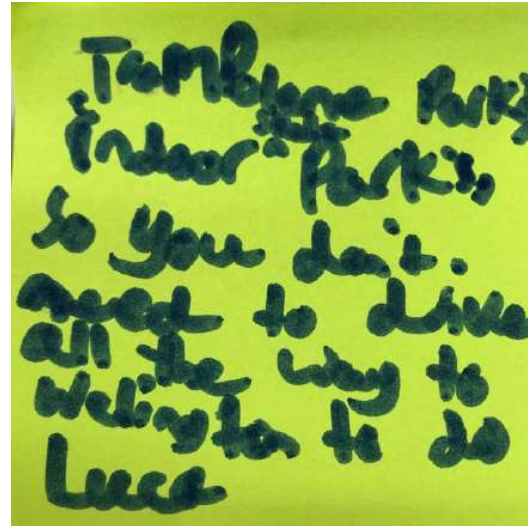 Trampolene Parks
indoor Parks
so you don't.
need to drive
all the way to
Welington to do
Luca